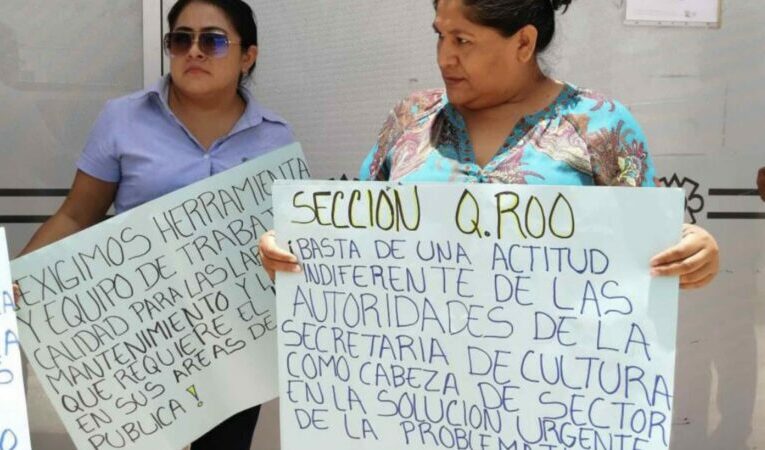 EXIGIMOS HERRAMIENTA
Y EQUIPO DE TRABAJO
CALIDAD PARA LAS
MANTENIMIENTO Y
QUE REQUIERE EL
EN SUS AREAS DE
PUBLICA!
SECCIÓN Q.ROO
¡BASTA DE UNA ACTITUD
INDIFERENTE DE LAS
AUTORIDADES DE LA
SECRETARIA DE CULTURA
COMO CABEZA DE SECTOR
EN LA SOLUCION URGENTE
DE LA